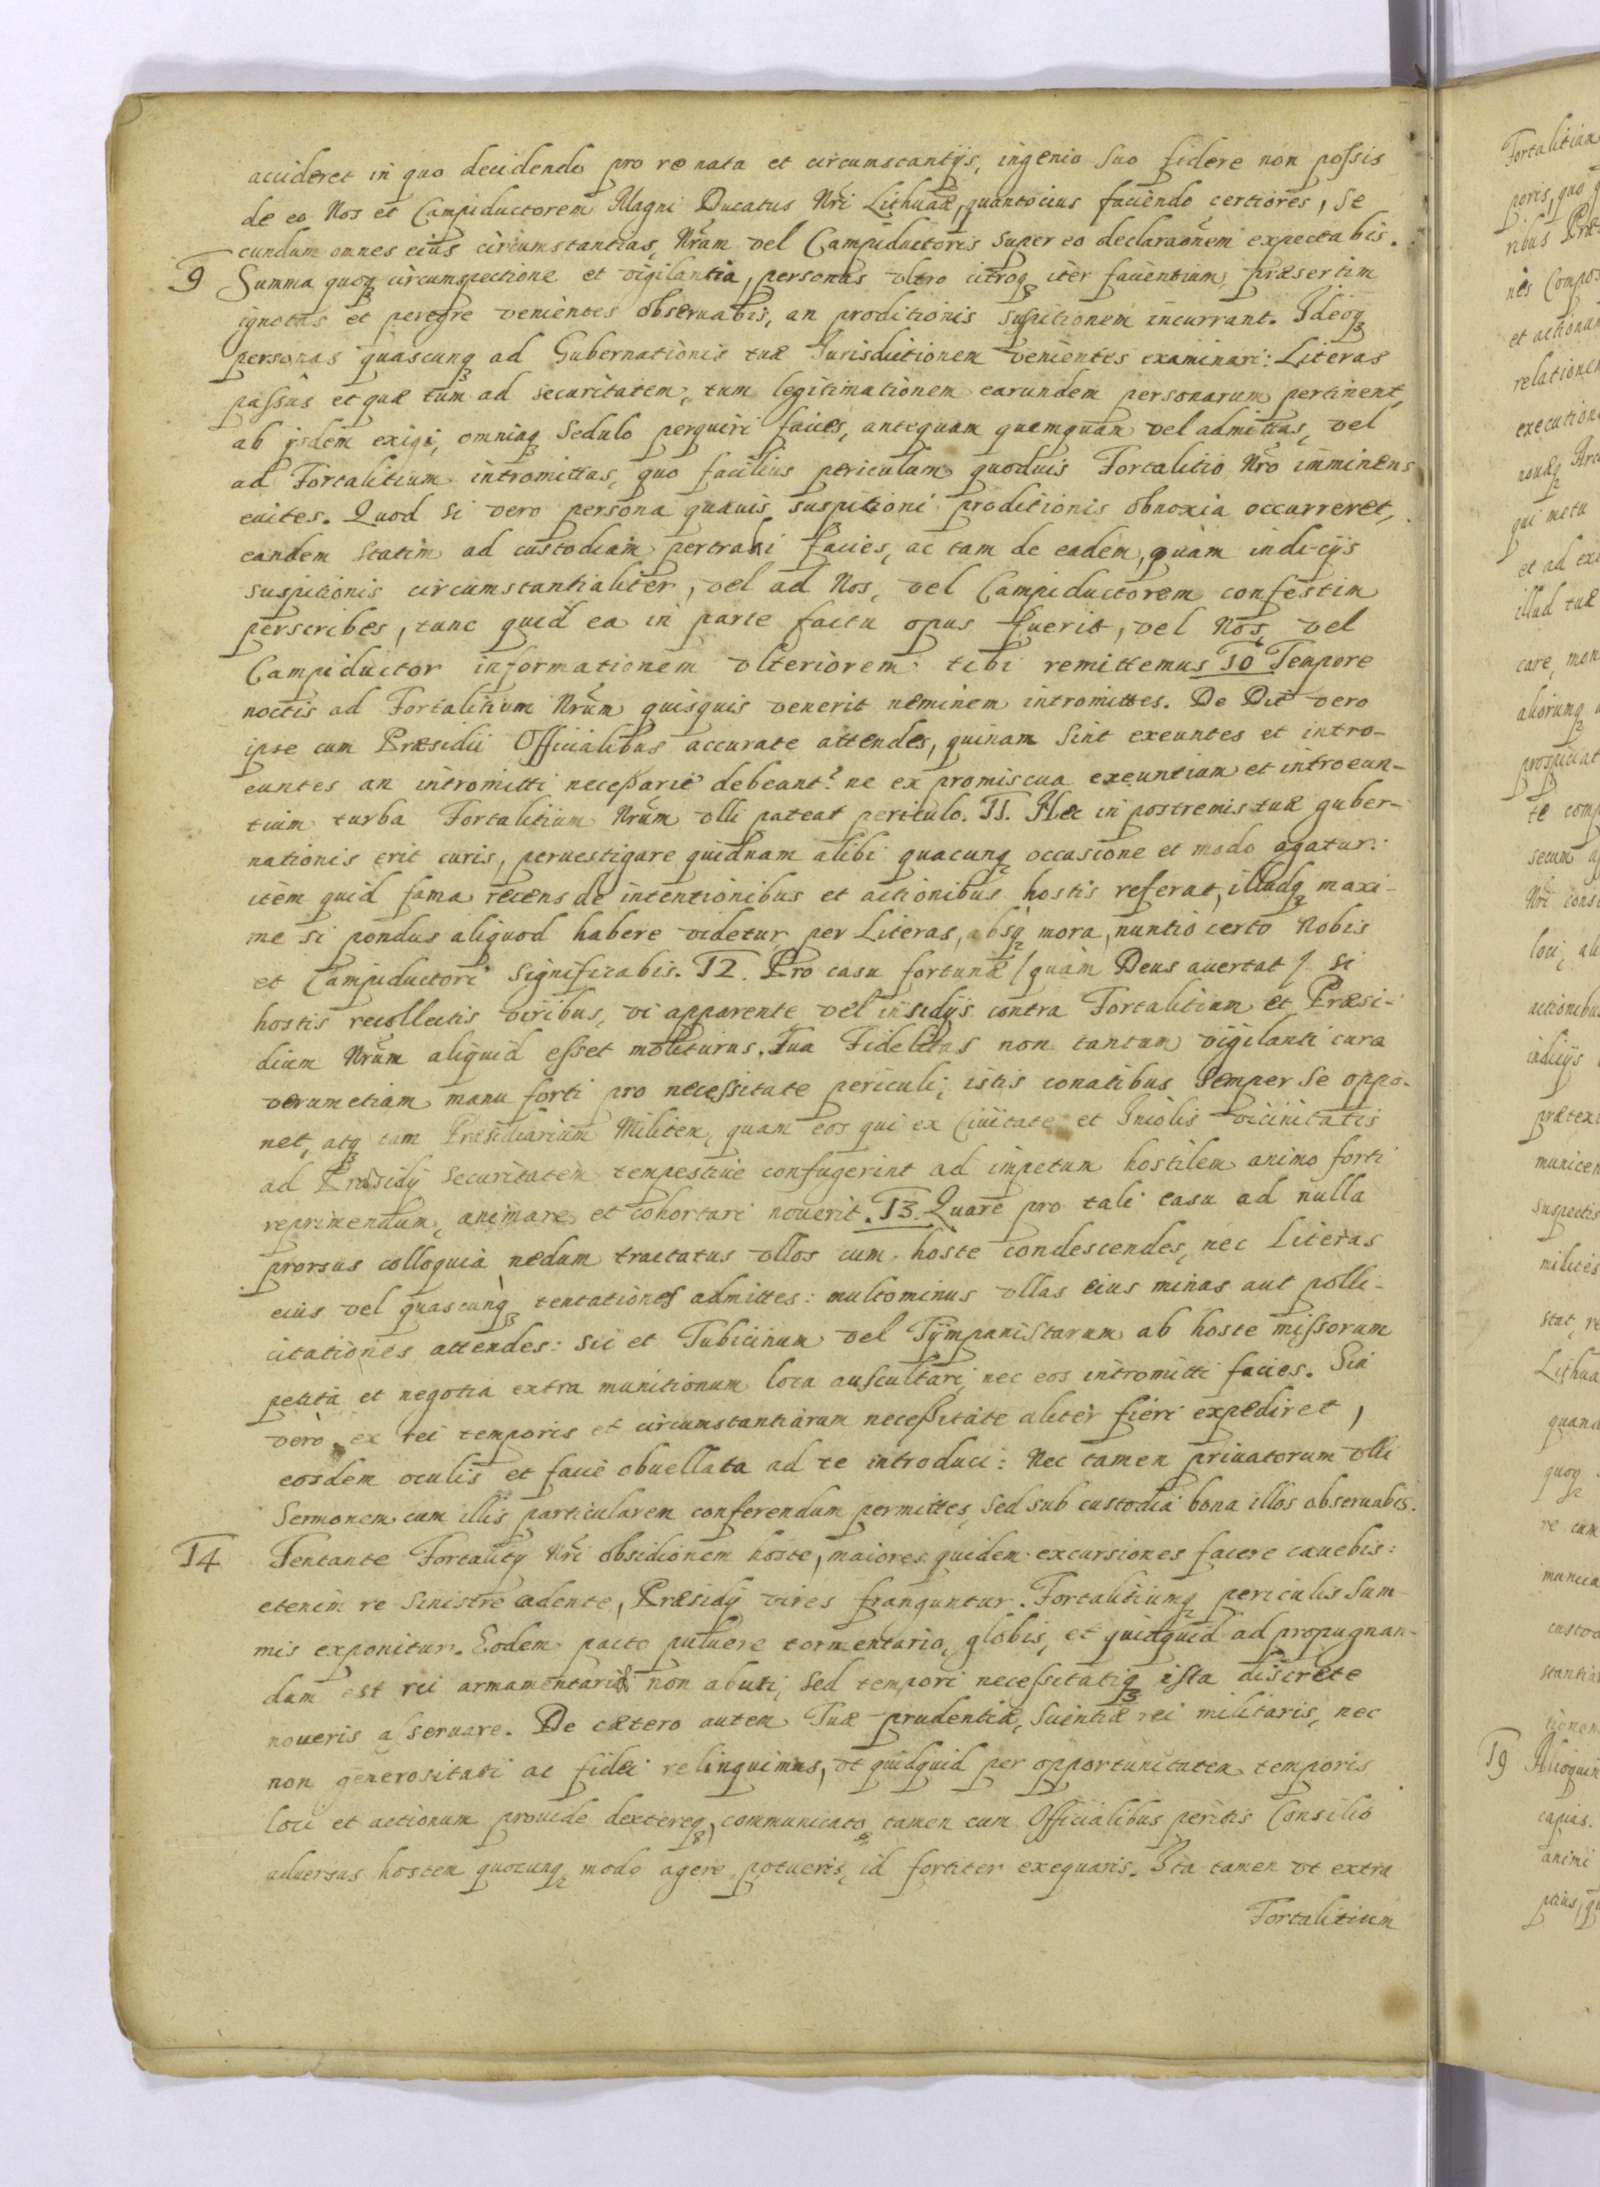 accideret in quo decidendo pro re nata et circumstantijs, ingenio suo fidere non possis
de eo Nos et Campiductorem Magni Ducatus Nři Lithuaæ, quantocius faciendo certiores, se
cundum omnes eius circumstantias, Nřam vel Campiductoris super eo declaraonem expectabis.
9 Summa quoq circumspectione et vigilantia, personas vltro citroq iter facientium, præsertim
ignotas et peregre venientes obseruabis, an proditionis suspitionem incurrant. Ideoq
personas quascunq ad Gubernationis tuæ Jurisdictionem venientes examinari: Literas
passus et quæ tum ad securitatem, tum legitimationem earundem personarum pertinent,
ab ijsdem exigi, omniaq sedulo perquiri facies, antequam quemquam vel admittas, vel
ad Fortalitium intromittas, quo facilius periculum quoduis Fortalitio Nřo imminens
euites. Quod si vero persona quauis suspitioni proditionis obnoxia occurreret,
eandem statim ad custodiam pertrahi facies, ac tam de eadem, quàm indicijs
suspitionis circumstantialiter, vel ad Nos, vel Campiductorem confestim
perscribes, tunc quid ea in parte factu opus fuerit, vel Nos, vel
Campiductor informationem vlteriorem tibi remittemus 10 Tempore
noctis ad Fortalitium Nřum quisquis venerit neminem intromittes. De Die vero
ipse cum Præsidii Officialibus accurate attendes, quinam sint exeuntes et intro-
euntes an intromitti necessarie debeant? ne ex promiscua exeuntium et introeun-
tium turba Fortalitium Nřum vlli pateat periculo. 11. Hæc in postremis tuæ guber-
nationis erit curis, peruestigare quidnam alibi quacunq occasione et modo agatur:
item quid fama recens de intentionibus et actionibus hostis referat, illudq maxi-
me si pondus aliquod habere videtur per Literas, absq mora, nuntio certo Nobis
et Campiductori significabis. 12. Pro casu fortunæ /quàm Deus auertat/ si
hostis recollectis viribus, vi apparente vel insidijs contra Fortalitium et Præsi-
dium Nřum aliquid esset moliturus. Tua Fidelitas non tantum vigilanti cura
verumetiam manu forti pro necessitate periculi, istis conatibus semper se oppo-
net, atq tam Præsidiarium Militem, quam eos qui ex Ciuitate et Incolis vicinitatis
ad Præsidij securitatem tempestiue confugerint ad impetum hostilem animo forti
reprimendum, animare et cohortari nouerit. 13. Quare pro tali casu ad nulla
prorsus colloquia nedum tractatus vllos cum hoste condescendes, nec Literas
eius vel quascunq tentationes admittes: multominus vllas eius minas aut polli-
citationes attendes: sic et Tubicinum vel Tÿmpanistarum ab hoste missorum
petita et negotia extra munitionum loca auscultari, nec eos intromitti facies. Sin
vero, ex rei temporis et circumstantiarum necessitate aliter fieri expediret,
eosdem oculis et facie obuellata ad te introduci: Nec tamen priuatorum vlli
Sermonem cum illis particularem conferendum permittes, sed sub custodia bona illos obseruabis.
14 Tentante Fortalitij Nři obsidionem hoste, maiores quidem excursiones facere cauebis:
etenim re sinistre cadente, Præsidij vires franguntur. Fortalitiumq periculis sum-
mis exponitur. Eodem pacto puluere tormentario, globis, et quidquid ad propugnan-
dum est rei armamentariæ non abuti, sed tempori necessitatiq ista discrete
noueris asseruare. De cætero autem Tuæ prudentiæ, scientiæ rei militaris, nec
non generositati ac fidei relinquimus, vt quidquid per opportunitatem temporis
loci et actionum prouide dextereq, communicato tamen cum Officialibus peritis Consilio
aduersus hostem quocunq modo agere potueris, id fortiter exequaris. Ita tamen vt extra
Fortalitium